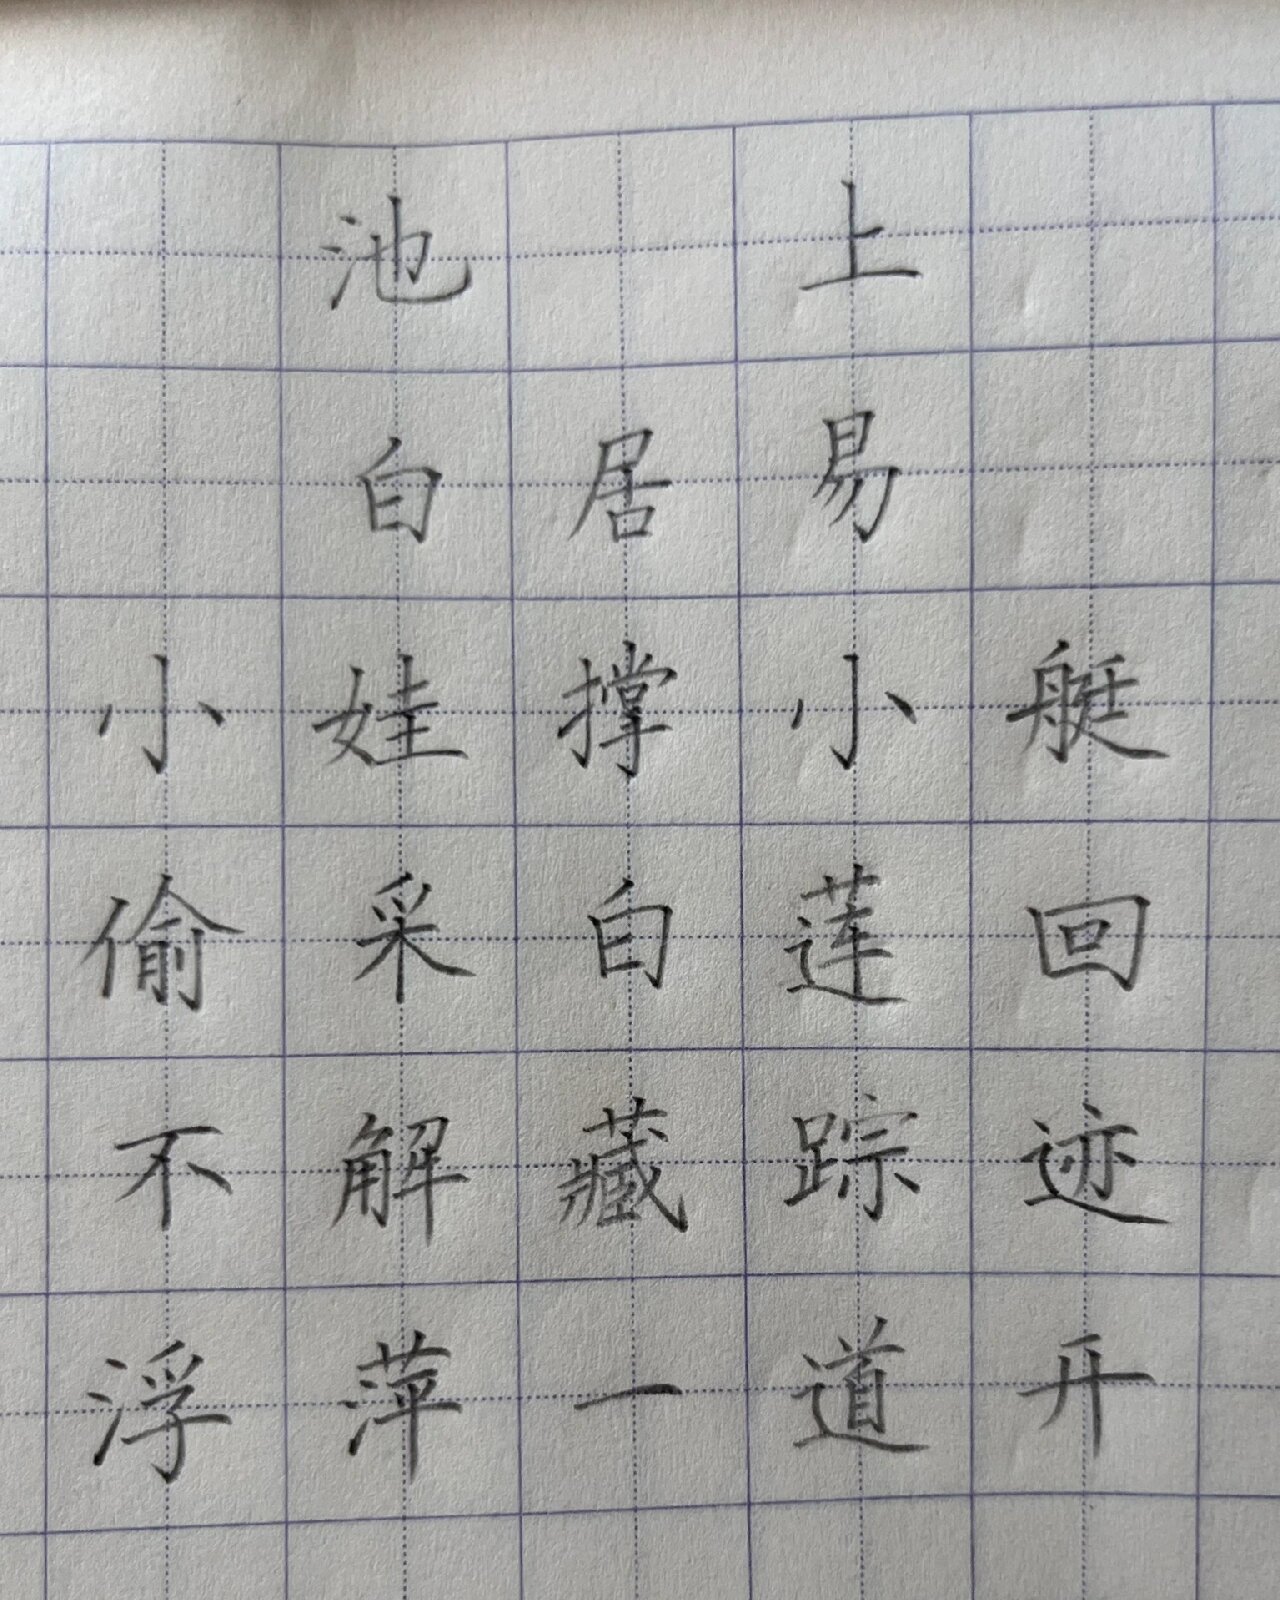 池上
白居易
小娃撑小艇
偷采白莲回
不解藏踪迹
浮萍一道开